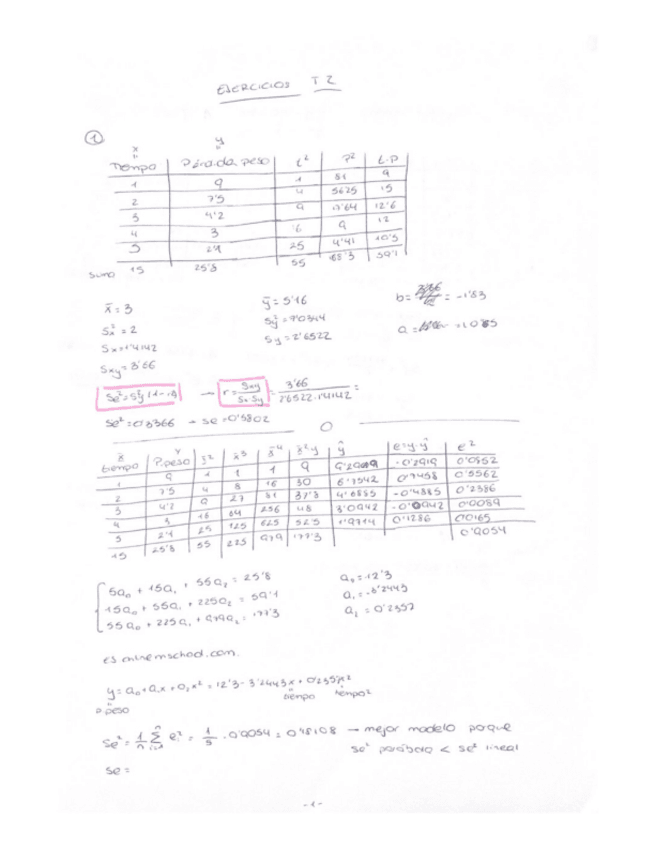 EJERCICIOS T 2
1
x y
Tiempo Pérdida peso t² P² t·P
1 9 1 81 9
2 7'5 4 5625 15
3 4'2 9 17'64 12'6
4 3 16 9 12
5 2'1 25 4'41 10'5
Suma 15 25'8 55 168'3 59'1
x̄ = 3 ȳ = 5'16 b = = -1'83
Sx² = 2 Sy² = 7'0344 a = = 10'65
Sx = 1'4142 Sy = 2'6522
Sxy = 3'66
Se² = Sy² (1 - r²) → r = Sxy / Sx Sy = 3'66 / 2'6522·1'4142 =
Se² = 0'3366 → Se = 0'5802
x y
tiempo P.peso x² x³ x⁴ x²y ŷ e=y-ŷ e²
1 9 1 1 1 9 9'2919 -0'2919 0'0852
2 7'5 4 8 16 30 6'7542 0'7458 0'5562
3 4'2 9 27 81 37'8 4'6885 -0'4885 0'2386
4 3 16 64 256 48 3'0942 -0'0942 0'0089
5 2'1 25 125 625 52'5 1'9714 0'1286 0'0165
15 25'8 55 225 979 177'3 0'9054
5a₀ + 15a₁ + 55a₂ = 25'8 a₀ = 12'3
15a₀ + 55a₁ + 225a₂ = 59'1 a₁ = -3'2443
55a₀ + 225a₁ + 979a₂ = 177'3 a₂ = 0'2357
es.onlinemschool.com
y = a₀ + a₁x + a₂x² = 12'3 - 3'2443x + 0'2357x²
P.peso tiempo tiempo²
Se² = 1/n Σ eᵢ² = 1/5 · 0'9054 = 0'18108 → mejor modelo porque
Se² parábola < Se² lineal
Se =
- 1 -